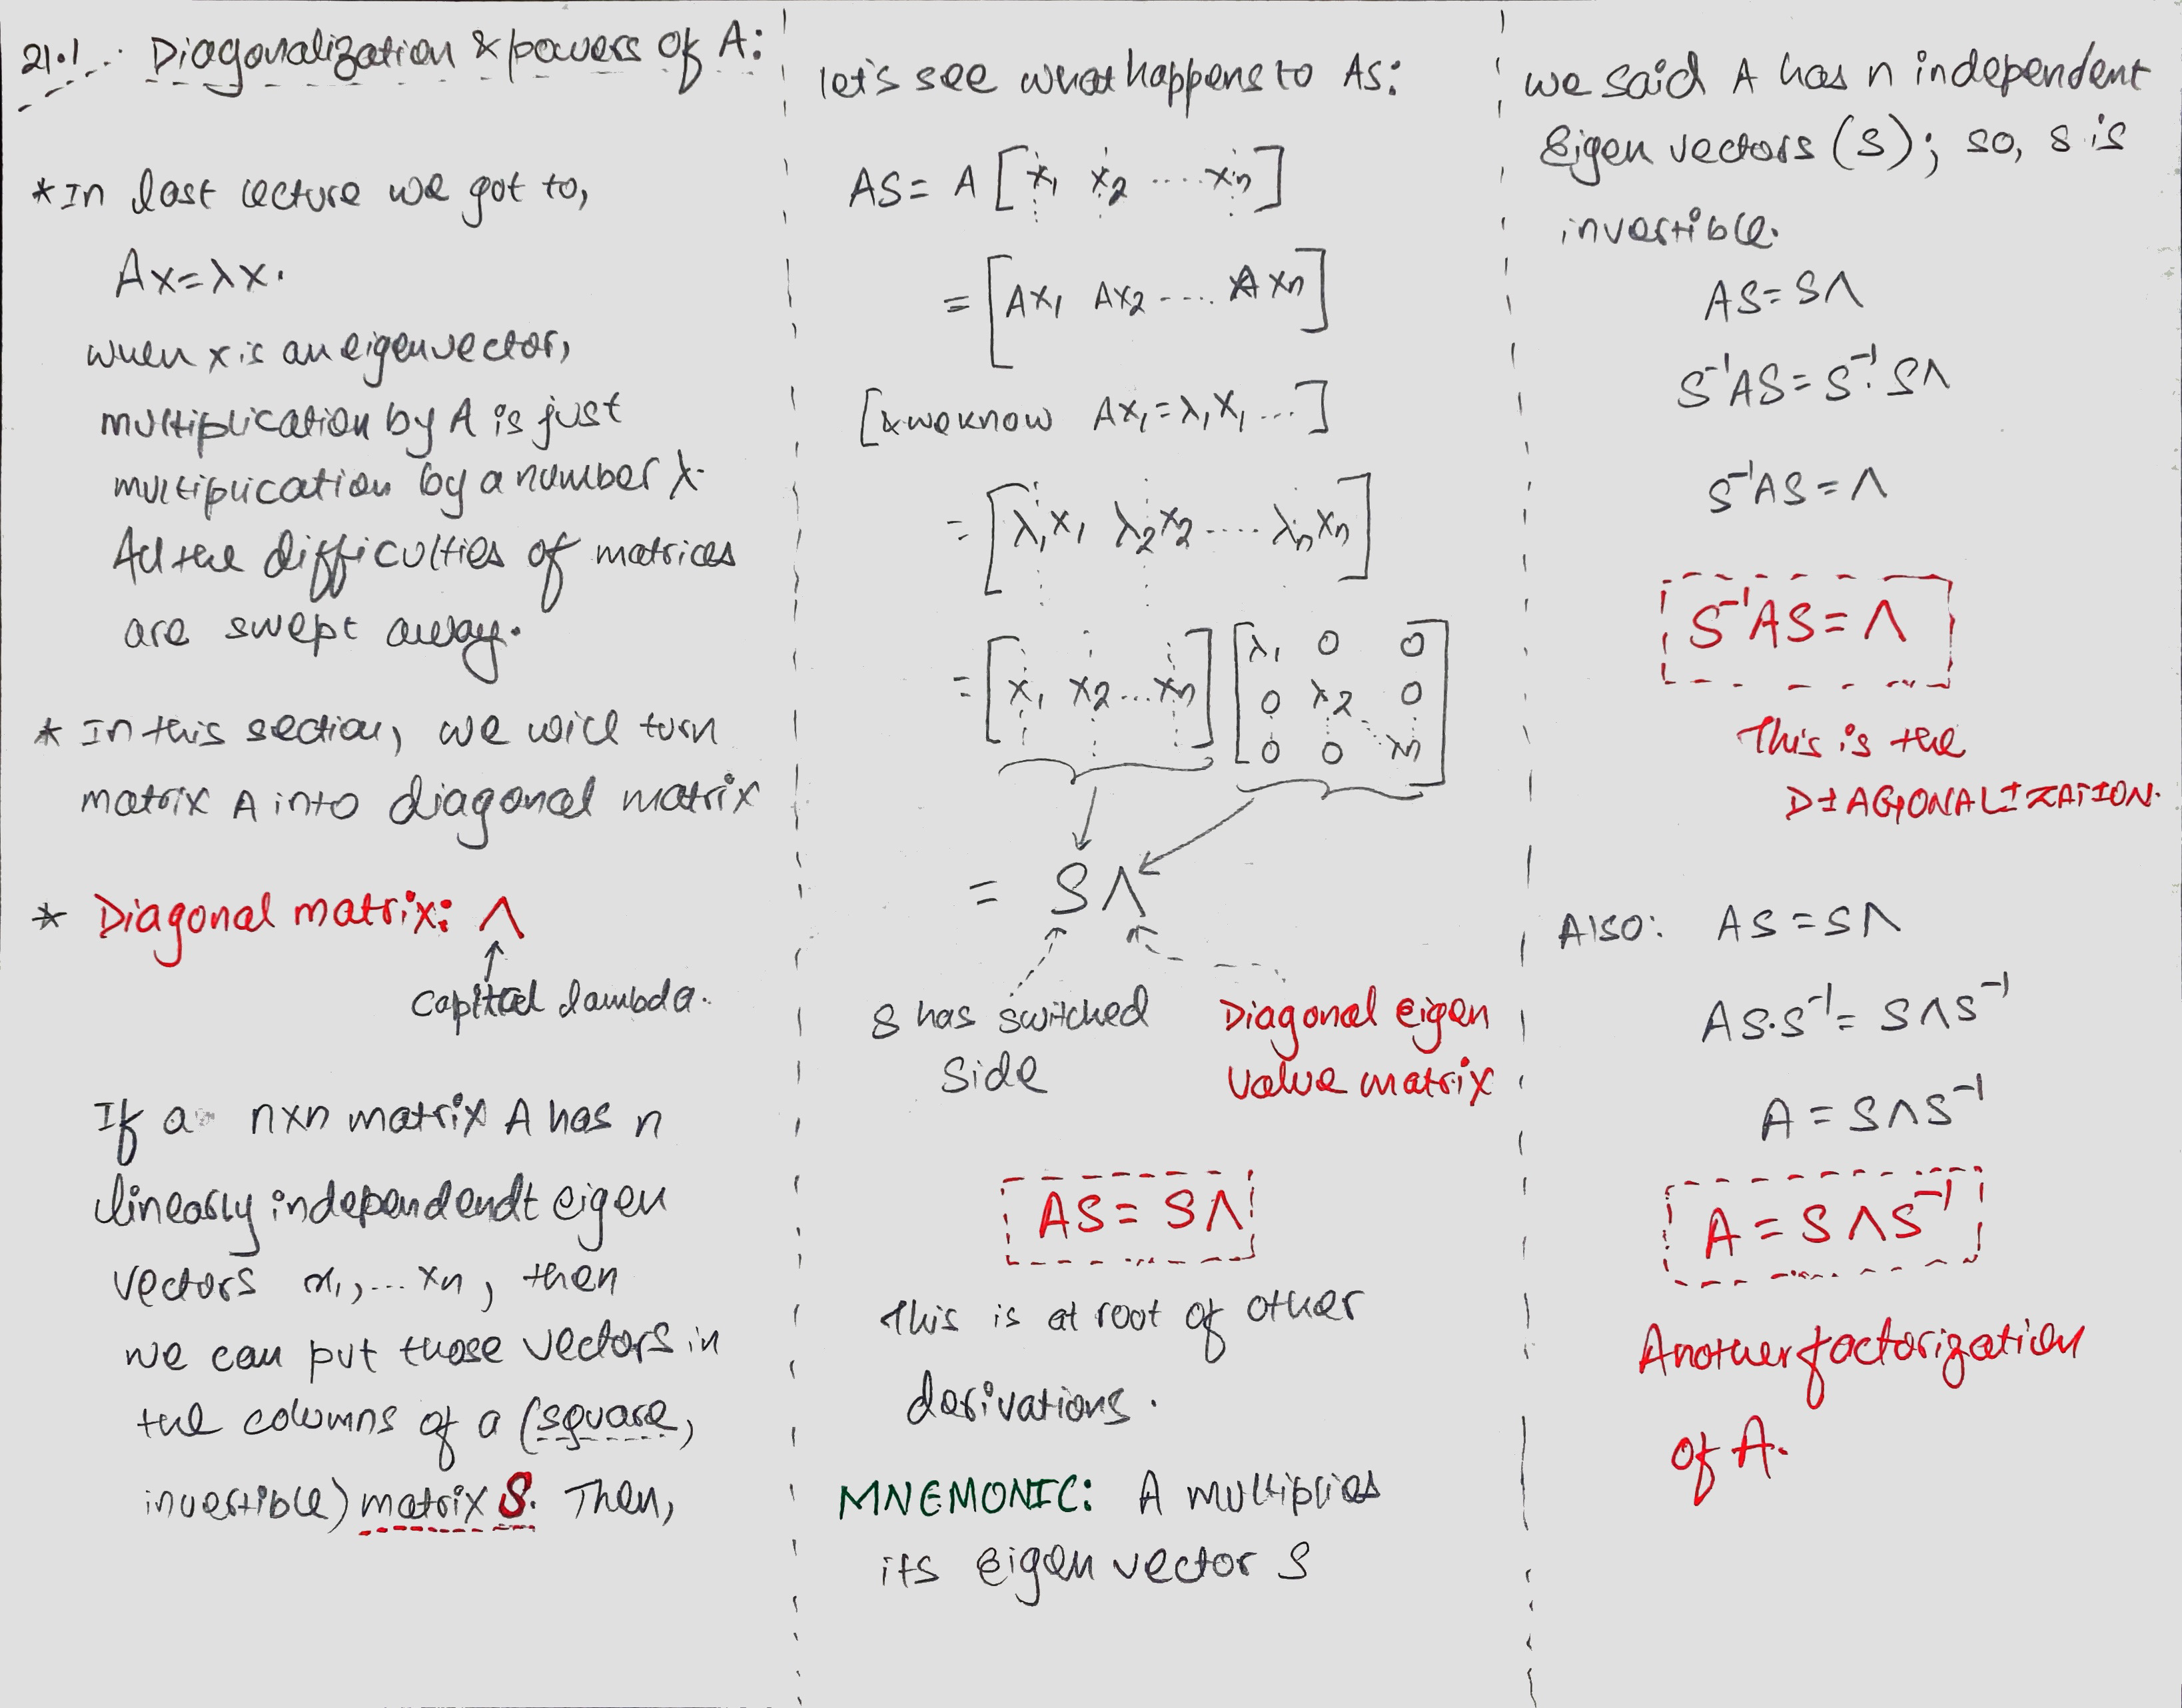 21.1 : Diagonalization & powers of A:
*In last lecture we got to,
Ax=λx.
when x is an eigenvector,
multiplication by A is just
multiplication by a number λ.
All the difficulties of matrices
are swept away.
* In this section, we will turn
matrix A into diagonal matrix
* Diagonal matrix: Λ
↑
capital lambda.
If a n×n matrix A has n
linearly independendt eigen
vectors x₁,...xn, then
we can put those vectors in
the columns of a (square,
invertible) matrix S. Then,
let's see what happens to AS:
AS = A [x₁ x₂ .... xn]
= [Ax₁ Ax₂ .... Axn]
[& we know Ax₁=λ₁x₁ ...]
= [λ₁x₁ λ₂x₂ .... λnxn]
= [x₁ x₂ ... xn] [λ₁ 0 0
0 λ₂ 0
0 0 λn]
= SΛ
S has switched
side
Diagonal eigen
value matrix
AS = SΛ
This is at root of other
derivations.
MNEMONIC: A multiplies
its eigen vector S
we said A has n independent
Eigen vectors (S); so, S is
invertible.
AS=SΛ
S⁻¹AS=S⁻¹.SΛ
S⁻¹AS=Λ
S⁻¹AS=Λ
This is the
DIAGONALIZATION.
Also: AS=SΛ
AS.S⁻¹=SΛS⁻¹
A=SΛS⁻¹
A=SΛS⁻¹
Another factorization
of A.